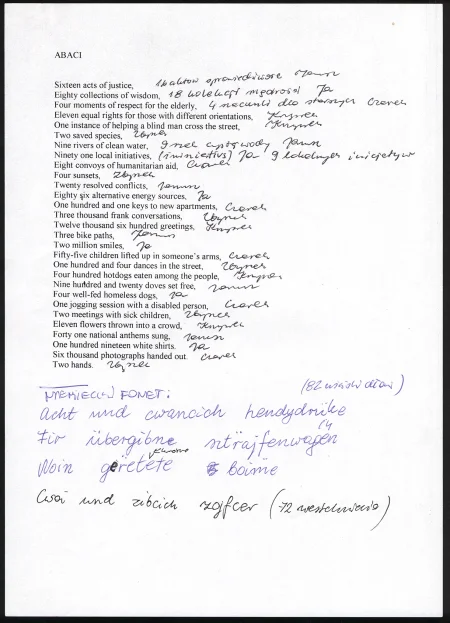 ABACI
Sixteen acts of justice, 16 aktów sprawiedliwości Janusz
Eighty collections of wisdom, 18 kolekcji mądrości Ja
Four moments of respect for the elderly, 4 szacunki dla starszych Czarek
Eleven equal rights for those with different orientations,
One instance of helping a blind man cross the street,
Two saved species, Zbyszek
Nine rivers of clean water, 9 rzek czystej wody Janusz
Ninety one local initiatives, Ja 9 lokalnych
Eight convoys of humanitarian aid, Czarek
Four sunsets, Zbyszek
Twenty resolved conflicts, Janusz
Eighty six alternative energy sources, Ja
One hundred and one keys to new apartments, Czarek
Three thousand frank conversations, Zbyszek
Twelve thousand six hundred greetings,
Three bike paths, Janusz
Two million smiles, Ja
Fifty-five children lifted up in someone's arms, Czarek
One hundred and four dances in the street, Zbyszek
Four hundred hotdogs eaten among the people,
Nine hundred and twenty doves set free, Janusz
Four well-fed homeless dogs, Ja
One jogging session with a disabled person, Czarek
Two meetings with sick children, Zbyszek
Eleven flowers thrown into a crowd,
Forty one national anthems sung, Janusz
One hundred nineteen white shirts. Ja
Six thousand photographs handed out. Czarek
Two hands. Zbyszek
NIEMIECKI FONET: (82 uściski dłoni)
Acht und cwancich hendydrüke
Fir übergibne sztrajfenwagen
Noin geretete boime
Cwai und zibcich zojfcer (72 westchnienia)